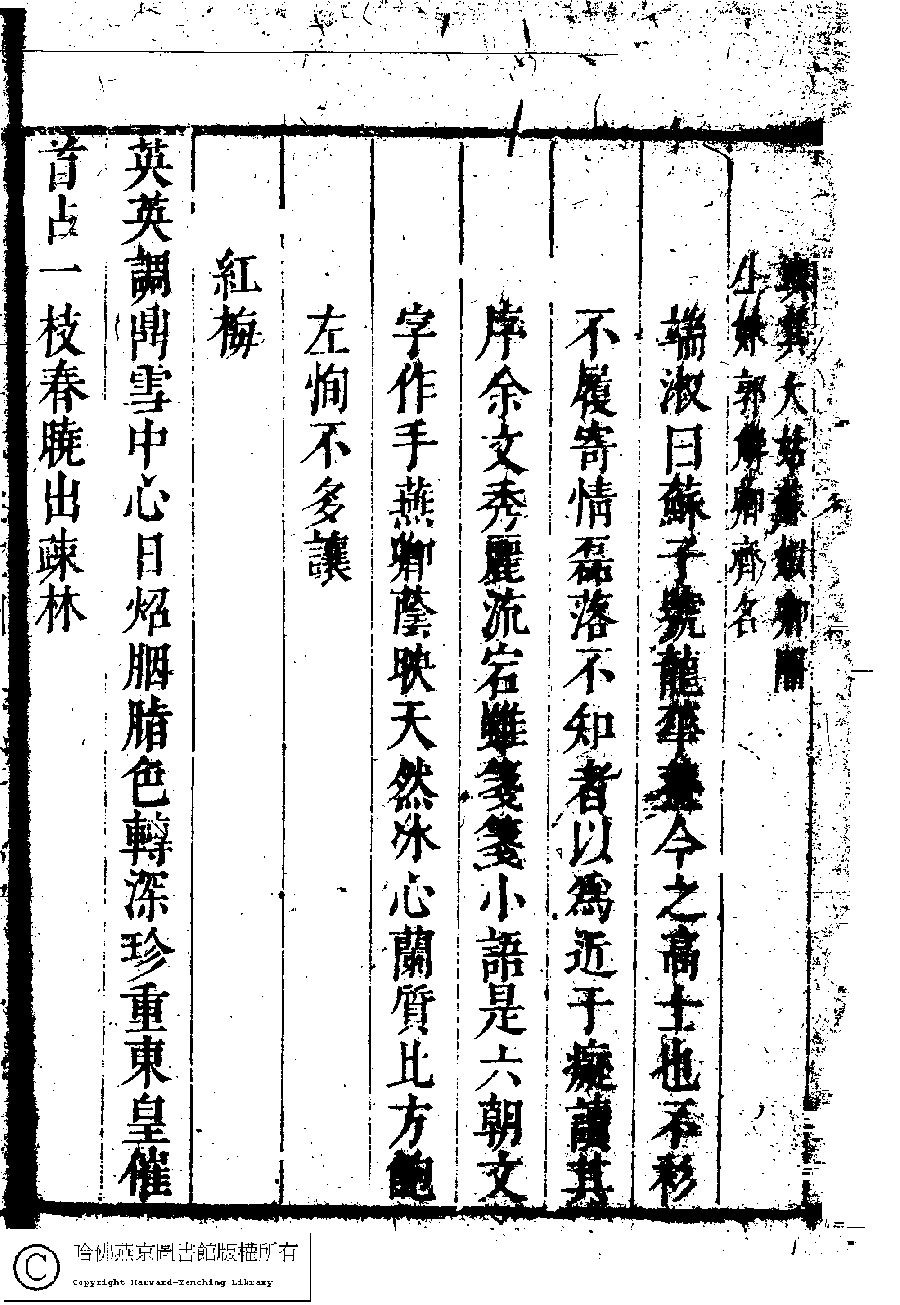 大姑蘇
生妹郭卿齊名
端淑曰蘇子號龍華今之高士也不衫
不履寄情磊落不知者以爲近于癡讀其
序余文秀麗流宕雖箋箋小語是六朝文
字作手燕卿蔭映天然冰心蘭質比方鮑
左恂不多讓
紅梅
英英調鼎雪中心日炤胭脂色轉深珍重東皇催
首占一枝春曉出疎林
哈佛燕京圖書館版權所有
Copyright Harvard-Yenching Library